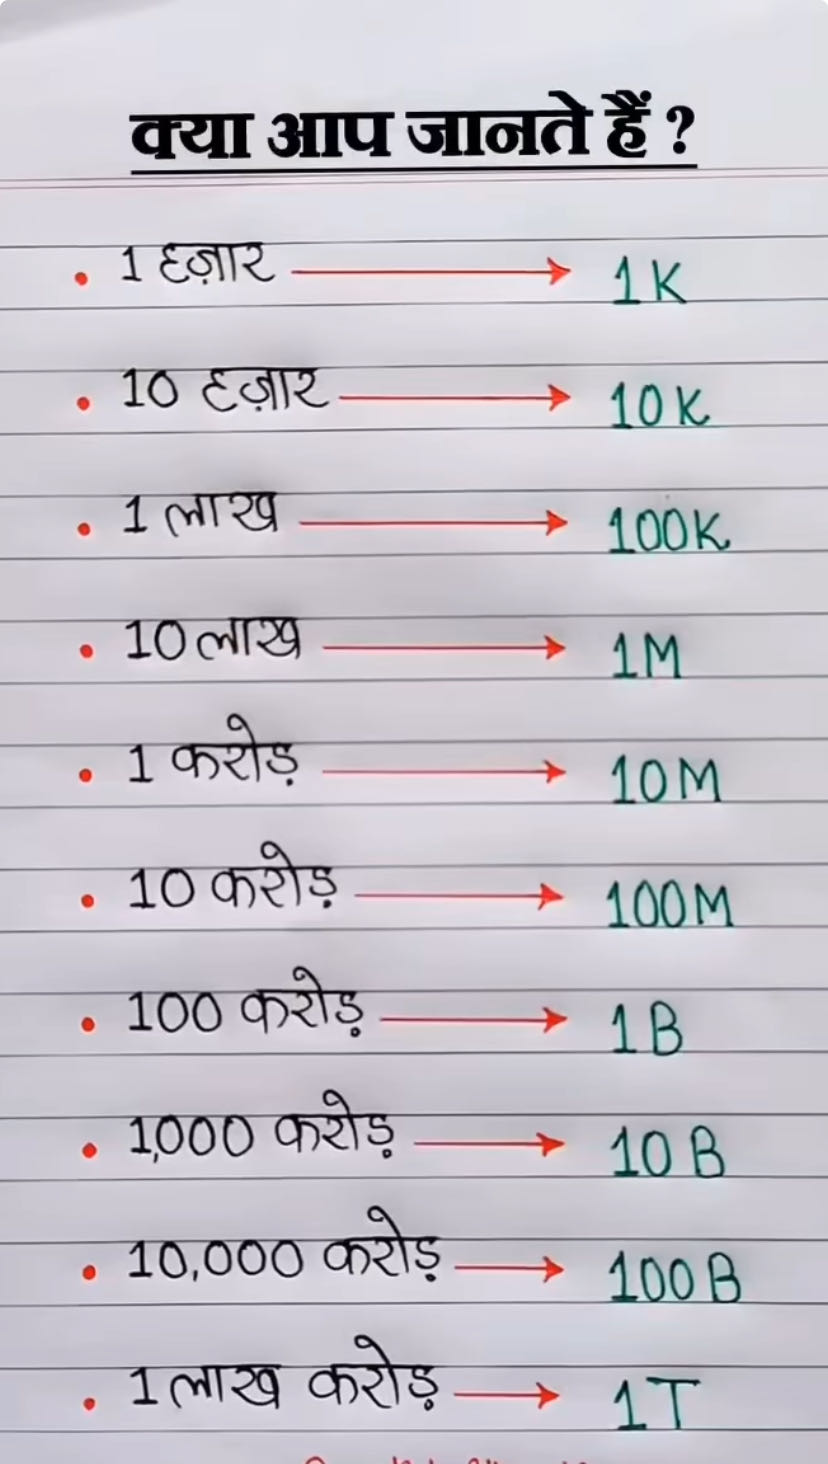 क्या आप जानते हैं ?
• 1 हज़ार → 1K
• 10 हज़ार → 10K
• 1 लाख → 100K
• 10 लाख → 1M
• 1 करोड़ → 10M
• 10 करोड़ → 100M
• 100 करोड़ → 1B
• 1,000 करोड़ → 10B
• 10,000 करोड़ → 100B
• 1 लाख करोड़ → 1T